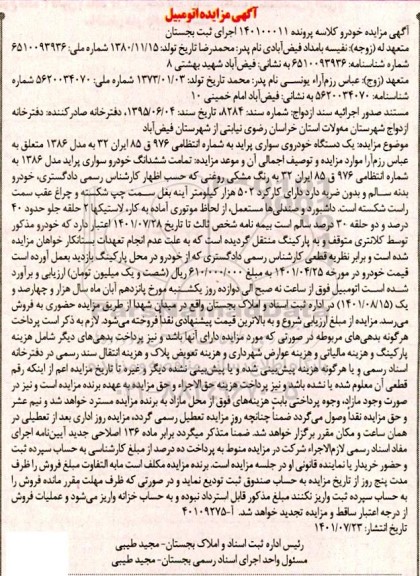 آگهی مزایده اتومبیل
آگهی مزایده خودرو کلاسه پرونده ۱۴۰۱۰۰۰۱۱ اجرای ثبت بجستان
متعهد له (زوجه): نفیسه بامداد فیض‌آبادی نام پدر: محمدرضا تاریخ تولد: ۱۳۸۰/۱۱/۱۵ شماره ملی: ۶۵۱۰۰۹۳۹۳۶
شماره شناسنامه: ۶۵۱۰۰۹۳۹۳۶ به نشانی: فیض‌آباد شهید بهشتی ۸
متعهد (زوج): عباس رزم‌آراء یونسی نام پدر: محمد تاریخ تولد: ۱۳۷۳/۰۱/۰۳ شماره ملی: ۵۶۲۰۰۳۴۰۷۰ شماره
شناسنامه: ۵۶۲۰۰۳۴۰۷۰ به نشانی: فیض‌آباد امام خمینی ۱۰
مستند صدور اجرائیه سند ازدواج: شماره سند: ۸۲۸۴، تاریخ سند: ۱۳۹۵/۰۶/۰۴، دفترخانه صادرکننده: دفترخانه
ازدواج شهرستان مه‌ولات استان خراسان رضوی نیابتی از شهرستان فیض‌آباد
موضوع مزایده: یک دستگاه خودروی سواری پراید به شماره انتظامی ۹۷۶ ق ۸۵ ایران ۳۲ به مدل ۱۳۸۶ متعلق به
عباس رزم‌آرا موارد مزایده و توصیف اجمالی آن و موعد مزایده: تمامت ششدانگ خودرو سواری پراید مدل ۱۳۸۶ به
شماره انتظامی ۹۷۶ ق ۸۵ ایران ۳۲ به رنگ مشکی روغنی که حسب اظهار کارشناس رسمی دادگستری، خودرو
بدنه سالم و بدون ضربه دارد دارای کارکرد ۵۰۲ هزار کیلومتر آینه بغل سمت چپ شکسته و چراغ عقب سمت
راست شکسته است. داشبورد و صندلی‌ها مستعمل، از لحاظ موتوری آماده به کار، لاستیکها ۲ حلقه جلو حدود ۴۰
درصد و دو حلقه ۳۰ درصد سالم است بیمه نامه شخص ثالث تا تاریخ ۱۴۰۱/۰۷/۲۸ اعتبار دارد که خودرو مذکور
توسط کلانتری متوقف و به پارکینگ منتقل گردیده است که به علت عدم انجام تعهدات بستانکار خواهان مزایده
شده است و برابر نظریه قطعی کارشناس رسمی دادگستری که از خودرو در محل پارکینگ بازدید بعمل آورده است
قیمت خودرو در مورخه ۱۴۰۱/۰۴/۲۵ به مبلغ ۶۱۰/۰۰۰/۰۰۰ ریال (شصت و یک میلیون تومان) ارزیابی و برآورد
شده است اتومبیل فوق از ساعت نه صبح الی دوازده روز یکشنبه مورخ پانزدهم آبان ماه سال هزار و چهارصد و
یک (۱۴۰۱/۰۸/۱۵) در اداره ثبت اسناد و املاک بجستان واقع در میدان شهدا از طریق مزایده حضوری به فروش
می‌رسد. مزایده از مبلغ ارزیابی شروع و به بالاترین قیمت پیشنهادی نقداً فروخته می‌شود. لازم به ذکر است پرداخت
هرگونه بدهی‌های مربوطه در صورتی که مورد مزایده دارای آنها باشد و نیز پرداخت بدهی‌های دیگر شامل هزینه
پارکینگ و هزینه مالیاتی و هزینه عوارض شهرداری و هزینه تعویض پلاک و هزینه انتقال سند رسمی در دفترخانه
اسناد رسمی و یا هرگونه هزینه پیش‌بینی شده و یا پیش‌بینی نشده دیگر و غیره تا تاریخ مزایده اعم از اینکه رقم
قطعی آن معلوم شده یا نشده باشد و نیز پرداخت هزینه حق‌الاجراء و حق مزایده به عهده برنده مزایده است و نیز در
صورت وجود مازاد، وجوه پرداختی بابت هزینه‌های فوق از محل مازاد به برنده مزایده مسترد خواهد شد و نیم عشر
و حق مزایده نقداً وصول می‌گردد ضمناً چنانچه روز مزایده تعطیل رسمی گردد، مزایده روز اداری بعد از تعطیلی در
همان ساعت و مکان مقرر برگزار خواهد شد. ضمناً متذکر میگردد برابر ماده ۱۳۶ اصلاحی جدید آیین‌نامه اجرای
مفاد اسناد رسمی لازم‌الاجراء شرکت در مزایده منوط به پرداخت ده درصد از مبلغ کارشناسی به حساب سپرده ثبت
و حضور خریدار یا نماینده قانونی او در جلسه مزایده است. برنده مزایده مکلف است مابه التفاوت مبلغ فروش را ظرف
مدت پنج روز از تاریخ مزایده به حساب صندوق ثبت تودیع نماید و در صورتی که ظرف مهلت مقرر مانده فروش را
به حساب سپرده ثبت واریز نکنند مبلغ مذکور قابل استرداد نبوده و به حساب خزانه واریز می‌شود و عملیات فروش
از درجه اعتبار ساقط و مزایده تجدید خواهد شد. آ-۴۰۱۰۹۲۷۵
تاریخ انتشار: ۱۴۰۱/۰۷/۲۳
رئیس اداره ثبت اسناد و املاک بجستان- مجید طیبی
مسئول واحد اجرای اسناد رسمی بجستان- مجید طیبی